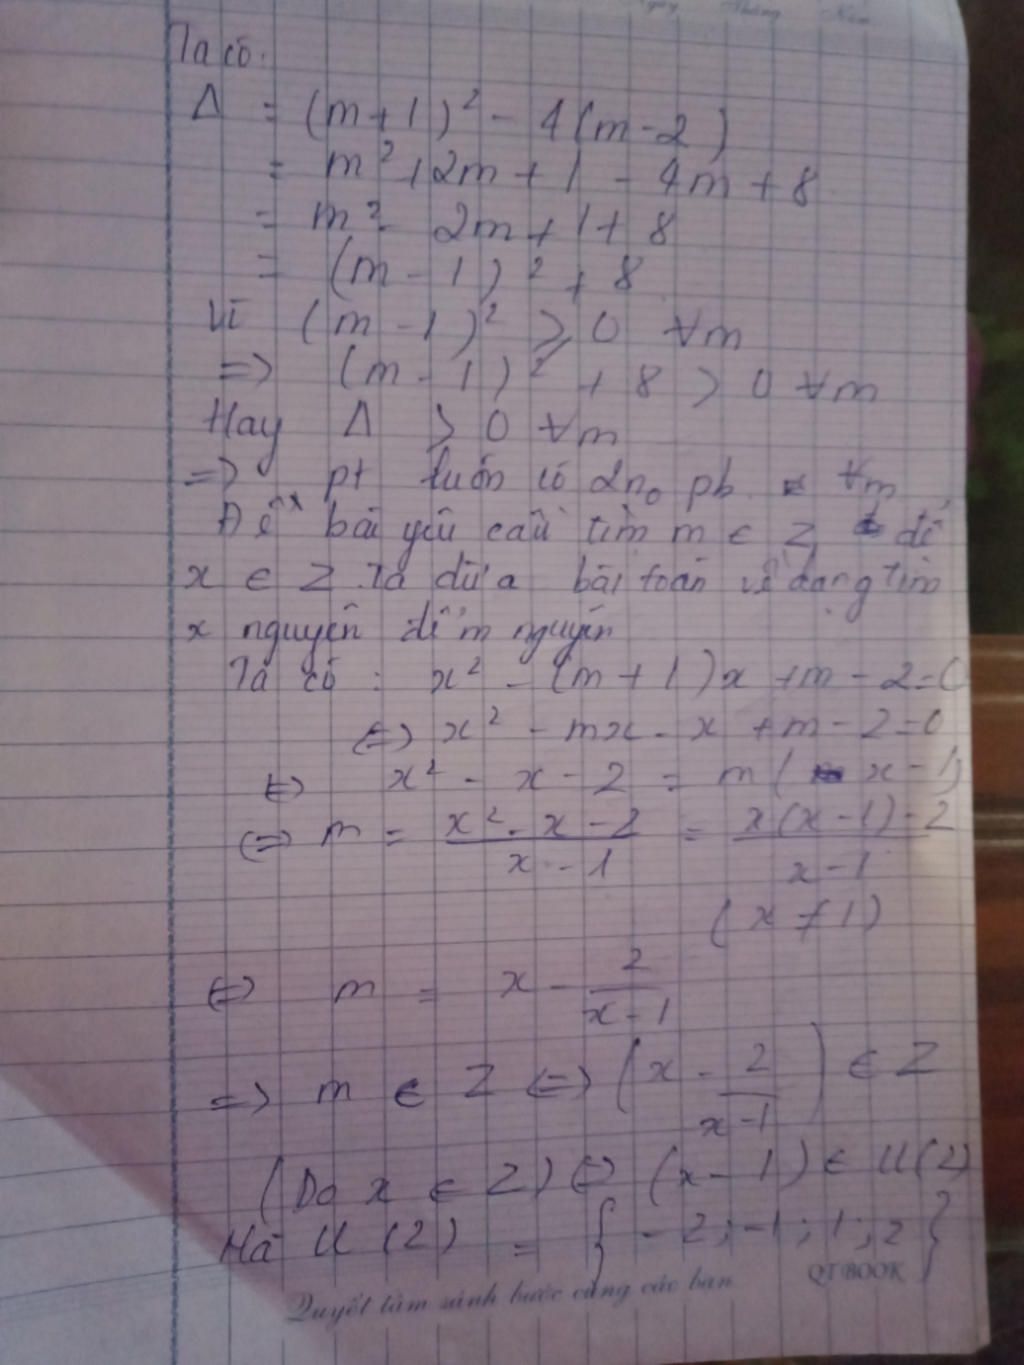 Ngày Tháng Năm
Ta có:
Δ = (m+1)² - 4(m-2)
= m² + 2m + 1 - 4m + 8
= m² - 2m + 1 + 8
= (m - 1)² + 8
Vì (m - 1)² ⩾ 0 ∀m
=> (m - 1)² + 8 > 0 ∀m
Hay Δ > 0 ∀m
=> pt luôn có 2n₀ pb ∀m
Để bài yêu cầu tìm m ∈ Z để
x ∈ Z. Ta đưa bài toán về dạng tìm
x nguyên để m nguyên
Ta có : x² - (m + 1)x + m - 2 = 0
<=> x² - mx - x + m - 2 = 0
<=> x² - x - 2 = m(x - 1)
<=> m = \frac{x² - x - 2}{x - 1} = \frac{x(x - 1) - 2}{x - 1}
(x ≠ 1)
<=> m = x - \frac{2}{x - 1}
=> m ∈ Z <=> (x - \frac{2}{x - 1}) ∈ Z
(Do x ∈ Z) <=> (x - 1) ∈ Ư(2)
Mà Ư(2) = {-2; -1; 1; 2}
Quyết tâm sánh bước cùng các bạn QT BOOK